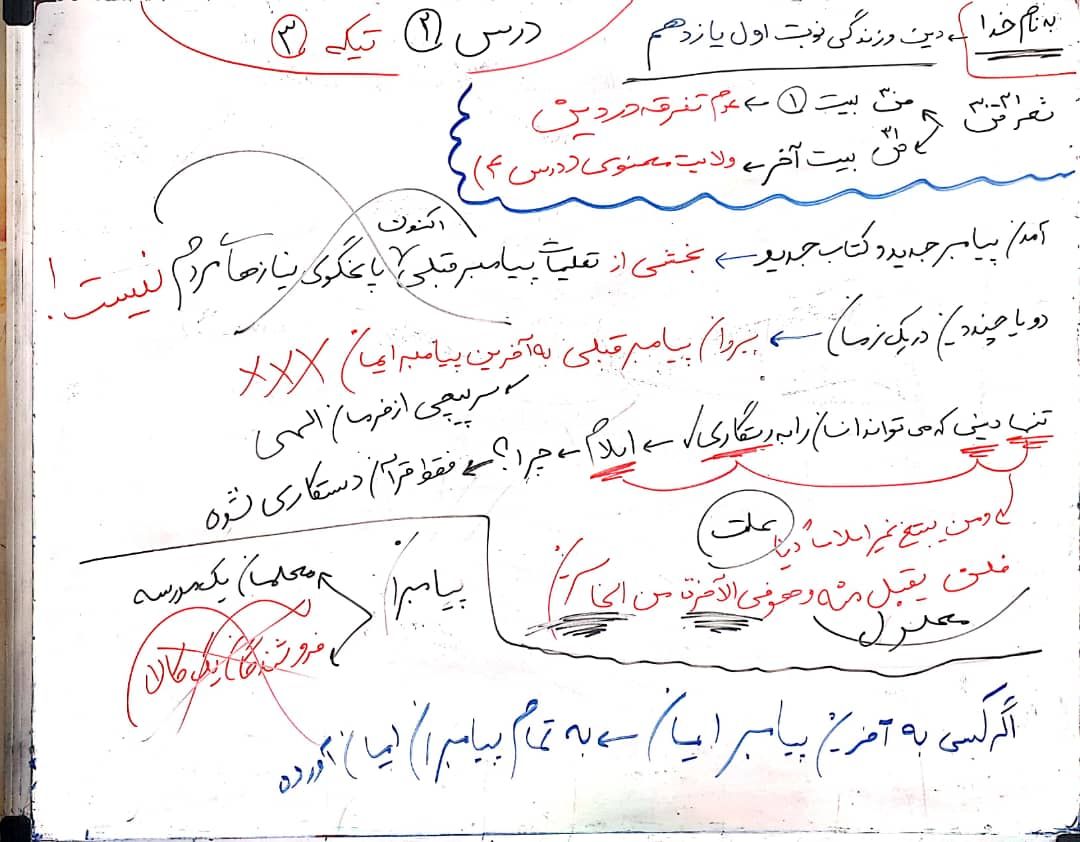 به نام خدا ← دین و زندگی نوبت اول یازدهم
درس ② تیکه ③
شعر ص ۳۰-۳۱
ص ۳۰ بیت ① ← عدم تفرقه در دین
ص ۳۱ بیت آخر ← ولایت معنوی (درس ۴)
آمدن پیامبر جدید و کتاب جدید ← بخشی از تعلیمات پیامبر قبلی اکنون پاسخگوی نیازهای مردم نیست!
دو یا چند دین در یک زمان ← پیروان پیامبر قبلی به آخرین پیامبر ایمان XXX
سرپیچی از فرمان الهی
تنها دینی که می تواند انسان را به رستگاری ← اسلام ← چرا؟ ← فقط قرآن دستکاری نشده
و من یبتغ غیر الاسلام دیناً علت
فلن یقبل منه و هو فی الآخرة من الخاسرین
معلول
پیامبران
معلمان یک مدرسه
فروشندگان یک کالا
اگر کسی به آخرین پیامبر ایمان ← به تمام پیامبران ایمان آورده